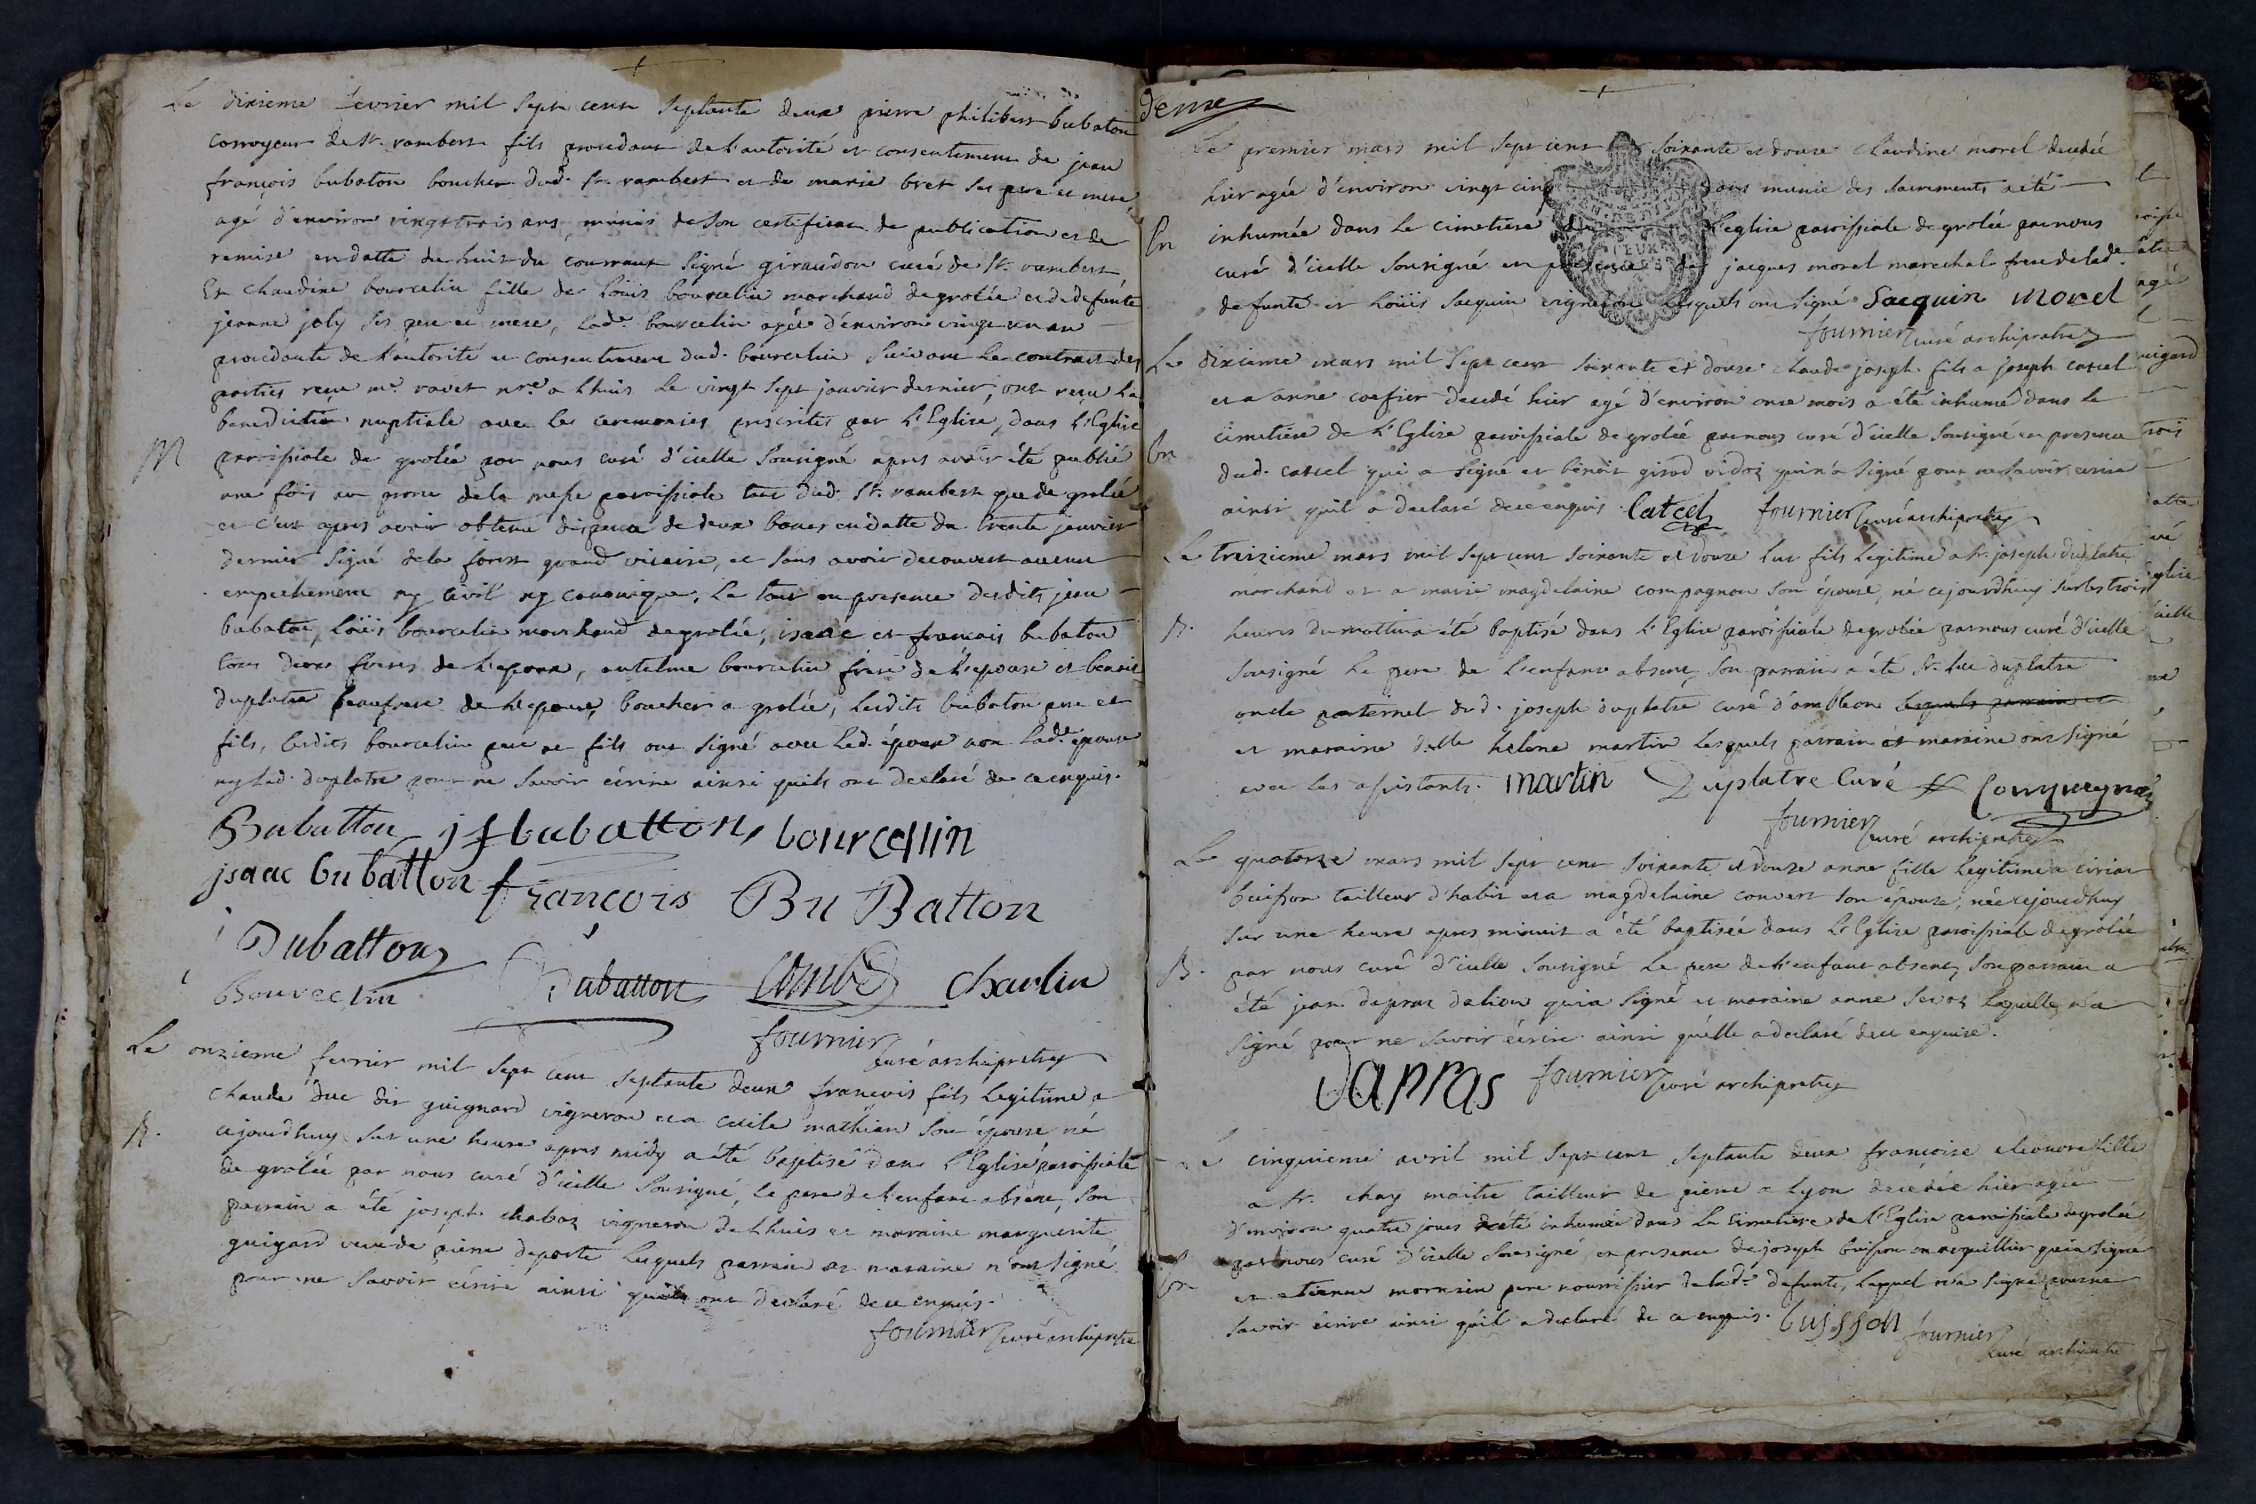 Le dixieme fevrier mil sept cent septante deux pierre philibert bubaton
corroyeur de st. rambert fils procedant de l'autorité et consentement de jean
françois bubaton boucher dud. st. rambert et de marie bret ses pere et mere,
agé d'environ vingt trois ans, munis de son certificat de publication et de
remise en datte du huit du courrant signé giraudon curé de st. rambert
Et claudine bourcelin fille de Loüis bourcelin marchand de grolée et de defunte
jeanne joly ses pere et mere, lade. bourcelin agée d'environ vingt un an
procedante de l'autorité et consentement dud. bourcelin suivant le contract des
parties reçu me. ravet nre. a Lhuis le vingt sept janvier dernier, ont reçu la
benediction nuptiale avec les ceremonies prescrites par l'Eglise, dans l'Eglise
M paroissiale de grolée par nous curé d'icelle sousigné apres avoir été publié
une fois au prone de la messe paroissiale tant dud. st. rambert que de grolée
et c'est apres avoir obtenu dispence de deux bancs en datte du trente janvier
dernier signé de la forest grand vicaire, et sans avoir decouvert aucun
empechement ny civil ny canonique, Le tout en presence desdits jean
bubaton, Loüis bourcelin marchand de grolée, isaac et françois bubaton
tous deux freres de l'epoux, antelme bourcelin frere de l'epouse et benoit
duplatre beaufrere de l'epouse, boucher a grolée, lesdits bubaton pere et
fils, lesdits bourcelin pere et fils ont signé avec led. époux non lade. épouse
ny led. duplatre pour ne savoir écrire ainsi quils ont declaré de ce enquis.
Bubatton j f bubatton, bourcellin
jsaac bubatton françois Bu Batton
Dubatton
Bourcelin Dubatton Combe Charlin
fournier curé archipretre
Le onzieme fevrier mil sept cent septante deux françois fils legitime a
claude duc dit guignard vigneron et a cecile mathian son épouse né
B. cejourdhuy sur une heure apres midy a été baptisé dans l'Eglise paroissiale
de grolée par nous curé d'icelle sousigné, le pere de l'enfant absent, son
parrain a été joseph chaboz vigneron de Lhuis et maraine marguerite
guigard veuve de pierre deporte lesquels parrain et maraine n'ont signé
pour ne savoir écrire ainsi quils ont declaré de ce enquis.
fournier curé archipretre
deux
Le premier mars mil sept cent soixante et douze claudine morel decedée
hier agée d'environ vingt cinq ans munie des sacrements a été
En inhumée dans le cimetiere de l'eglise paroissiale de grolée par nous
curé d'icelle sousigné en presence de jacques morel marechal frere de lade.
defunte et Loüis Jacquin vigneron lesquels ont signé Jacquin morel
fournier curé archipretre
Le dixieme mars mil sept cent soixante et douze claude joseph fils a joseph catcel
et a anne coefier decedé hier agé d'environ onze mois a été inhumé dans le
cimetiere de l'Eglise paroissiale de grolée par nous curé d'icelle sousigné en presence
En dud. catcel qui a signé et benoit girod vidoz qui n'a signé pour ne savoir ecrire
ainsi qu'il a declaré de ce enquis. Catcel fournier curé archipretre
Le treizieme mars mil sept cent soixante et douze luc fils legitime a sr. joseph duplatre
marchand et a marie magdelaine compagnon son épouse, né cejourdhuy sur les trois
B. heures du matin a été baptisé dans l'Eglise paroissiale de grolée par nous curé d'icelle
sousigné le pere de l'enfant absent, son parrain a été sr. luc duplatre
oncle paternel dud. joseph duplatre curé d'ambleon lesquels parrain et
et maraine delle helene martin lesquels parrain et maraine ont signé
avec les assistants. martin Duplatre Curé Compagnon
fournier curé archipretre
Le quatorze mars mil sept cent soixante et douze anne fille legitime a
buisson tailleur d'habit et a magdelaine convert son épouse, née cejourdhuy
sur une heure apres minuit a été baptisée dans l'Eglise paroissiale de grolée
B. par nous curé d'icelle sousigné le pere de l'enfant absent, son parrain a
été jean dapraz qui a signé et maraine anne laquelle n'a
signé pour ne savoir écrire ainsi qu'elle a declaré de ce enquise.
dapras fournier curé archipretre
Le cinquieme avril mil sept cent septante deux françoise eleonore fille
a sr. chay maitre tailleur de pierre a lyon decedée hier agée
d'environ quatre jours a été inhumée dans le cimetiere de l'Eglise paroissiale de grolée
En par nous curé d'icelle sousigné, en presence de joseph buisson qui a signé
et etienne pere nourrissier de lade. defunte, lequel n'a signé pour ne
savoir écrire ainsi qu'il a declaré de ce enquis. buisson fournier
curé archipretre